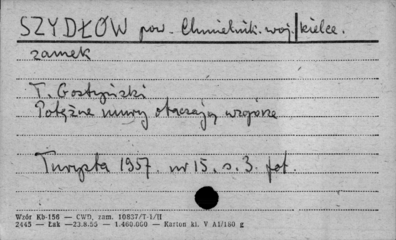 SZYDŁÓW pow. Chmielnik. woj. kielce.
zamek
T. Gostyński
Potężne mury otaczają wzgórze
Turysta 1957. nr 15. s. 3. fot.
Wzór Kb-156 — CWD, zam. 10837/T-1/II
2445 — Łak —23.8.55 — 1.460.000 — Karton kl. V A1/180 g